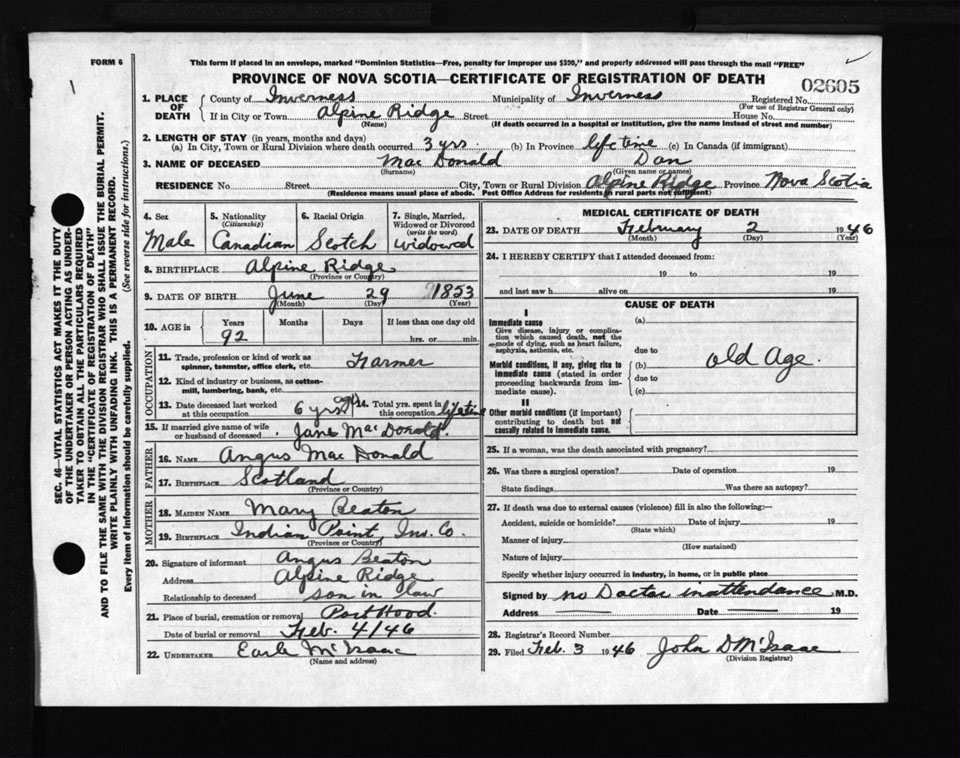 FORM 6
This form if placed in an envelope, marked "Dominion Statistics—Free, penalty for improper use $300," and properly addressed will pass through the mail "FREE"
PROVINCE OF NOVA SCOTIA—CERTIFICATE OF REGISTRATION OF DEATH
02605
1
1. PLACE OF DEATH County of Inverness Municipality of Inverness Registered No.
(For use of Registrar General only)
If in City or Town Alpine Ridge Street House No.
(Name) (If death occurred in a hospital or institution, give the name instead of street and number)
2. LENGTH OF STAY (in years, months and days)
(a) In City, Town or Rural Division where death occurred 3 yrs. (b) In Province life time (c) In Canada (if immigrant)
3. NAME OF DECEASED Mac Donald Dan
(Surname) (Given name or names)
RESIDENCE No. Street City, Town or Rural Division Alpine Ridge Province Nova Scotia
(Residence means usual place of abode. Post Office Address for residents in rural parts not sufficient)
SEC. 46—VITAL STATISTICS ACT MAKES IT THE DUTY
OF THE UNDERTAKER OR PERSON ACTING AS UNDER-
TAKER TO OBTAIN ALL THE PARTICULARS REQUIRED
IN THE "CERTIFICATE OF REGISTRATION OF DEATH"
AND TO FILE THE SAME WITH THE DIVISION REGISTRAR WHO SHALL ISSUE THE BURIAL PERMIT.
WRITE PLAINLY WITH UNFADING INK. THIS IS A PERMANENT RECORD.
Every item of information should be carefully supplied. (See reverse side for instructions.)
4. Sex Male
5. Nationality (Citizenship) Canadian
6. Racial Origin Scotch
7. Single, Married, Widowed or Divorced (write the word) widowed
8. BIRTHPLACE Alpine Ridge
(Province or Country)
9. DATE OF BIRTH June 29 1853
(Month) (Day) (Year)
10. AGE in Years Months Days If less than one day old
92 hrs. or min.
OCCUPATION
11. Trade, profession or kind of work as spinner, teamster, office clerk, etc. Farmer
12. Kind of industry or business, as cotton-mill, lumbering, bank, etc.
13. Date deceased last worked at this occupation 6 yrs ago 14. Total yrs. spent in this occupation lifetime
15. If married give name of wife or husband of deceased Jane Mac Donald.
FATHER
16. NAME Angus Mac Donald
17. BIRTHPLACE Scotland
(Province or Country)
MOTHER
18. MAIDEN NAME Mary Beaton
19. BIRTHPLACE Indian Point Ins. Co.
(Province or Country)
20. Signature of informant Angus Beaton
Address Alpine Ridge
Relationship to deceased son in law
21. Place of burial, cremation or removal Port Hood.
Date of burial or removal Feb. 4/46
22. UNDERTAKER Earle McIsaac
(Name and address)
MEDICAL CERTIFICATE OF DEATH
23. DATE OF DEATH February 2 1946
(Month) (Day) (Year)
24. I HEREBY CERTIFY that I attended deceased from:
19 to 19
and last saw h alive on 19
CAUSE OF DEATH
I
Immediate cause
Give disease, injury or complication which caused death, not the mode of dying, such as heart failure, asphyxia, asthenia, etc.
(a)
due to
Morbid conditions, if any, giving rise to immediate cause (stated in order proceeding backwards from immediate cause).
(b) old Age.
due to
(c)
II
Other morbid conditions (if important) contributing to death but not causally related to immediate cause.
25. If a woman, was the death associated with pregnancy?
26. Was there a surgical operation? Date of operation 19
State findings Was there an autopsy?
27. If death was due to external causes (violence) fill in also the following:—
Accident, suicide or homicide? Date of injury 19
(State which)
Manner of injury
(How sustained)
Nature of injury
Specify whether injury occurred in industry, in home, or in public place
Signed by no Doctor in attendance M.D.
Address Date 19
28. Registrar's Record Number
29. Filed Feb. 3 1946 John D McIsaac
(Division Registrar)